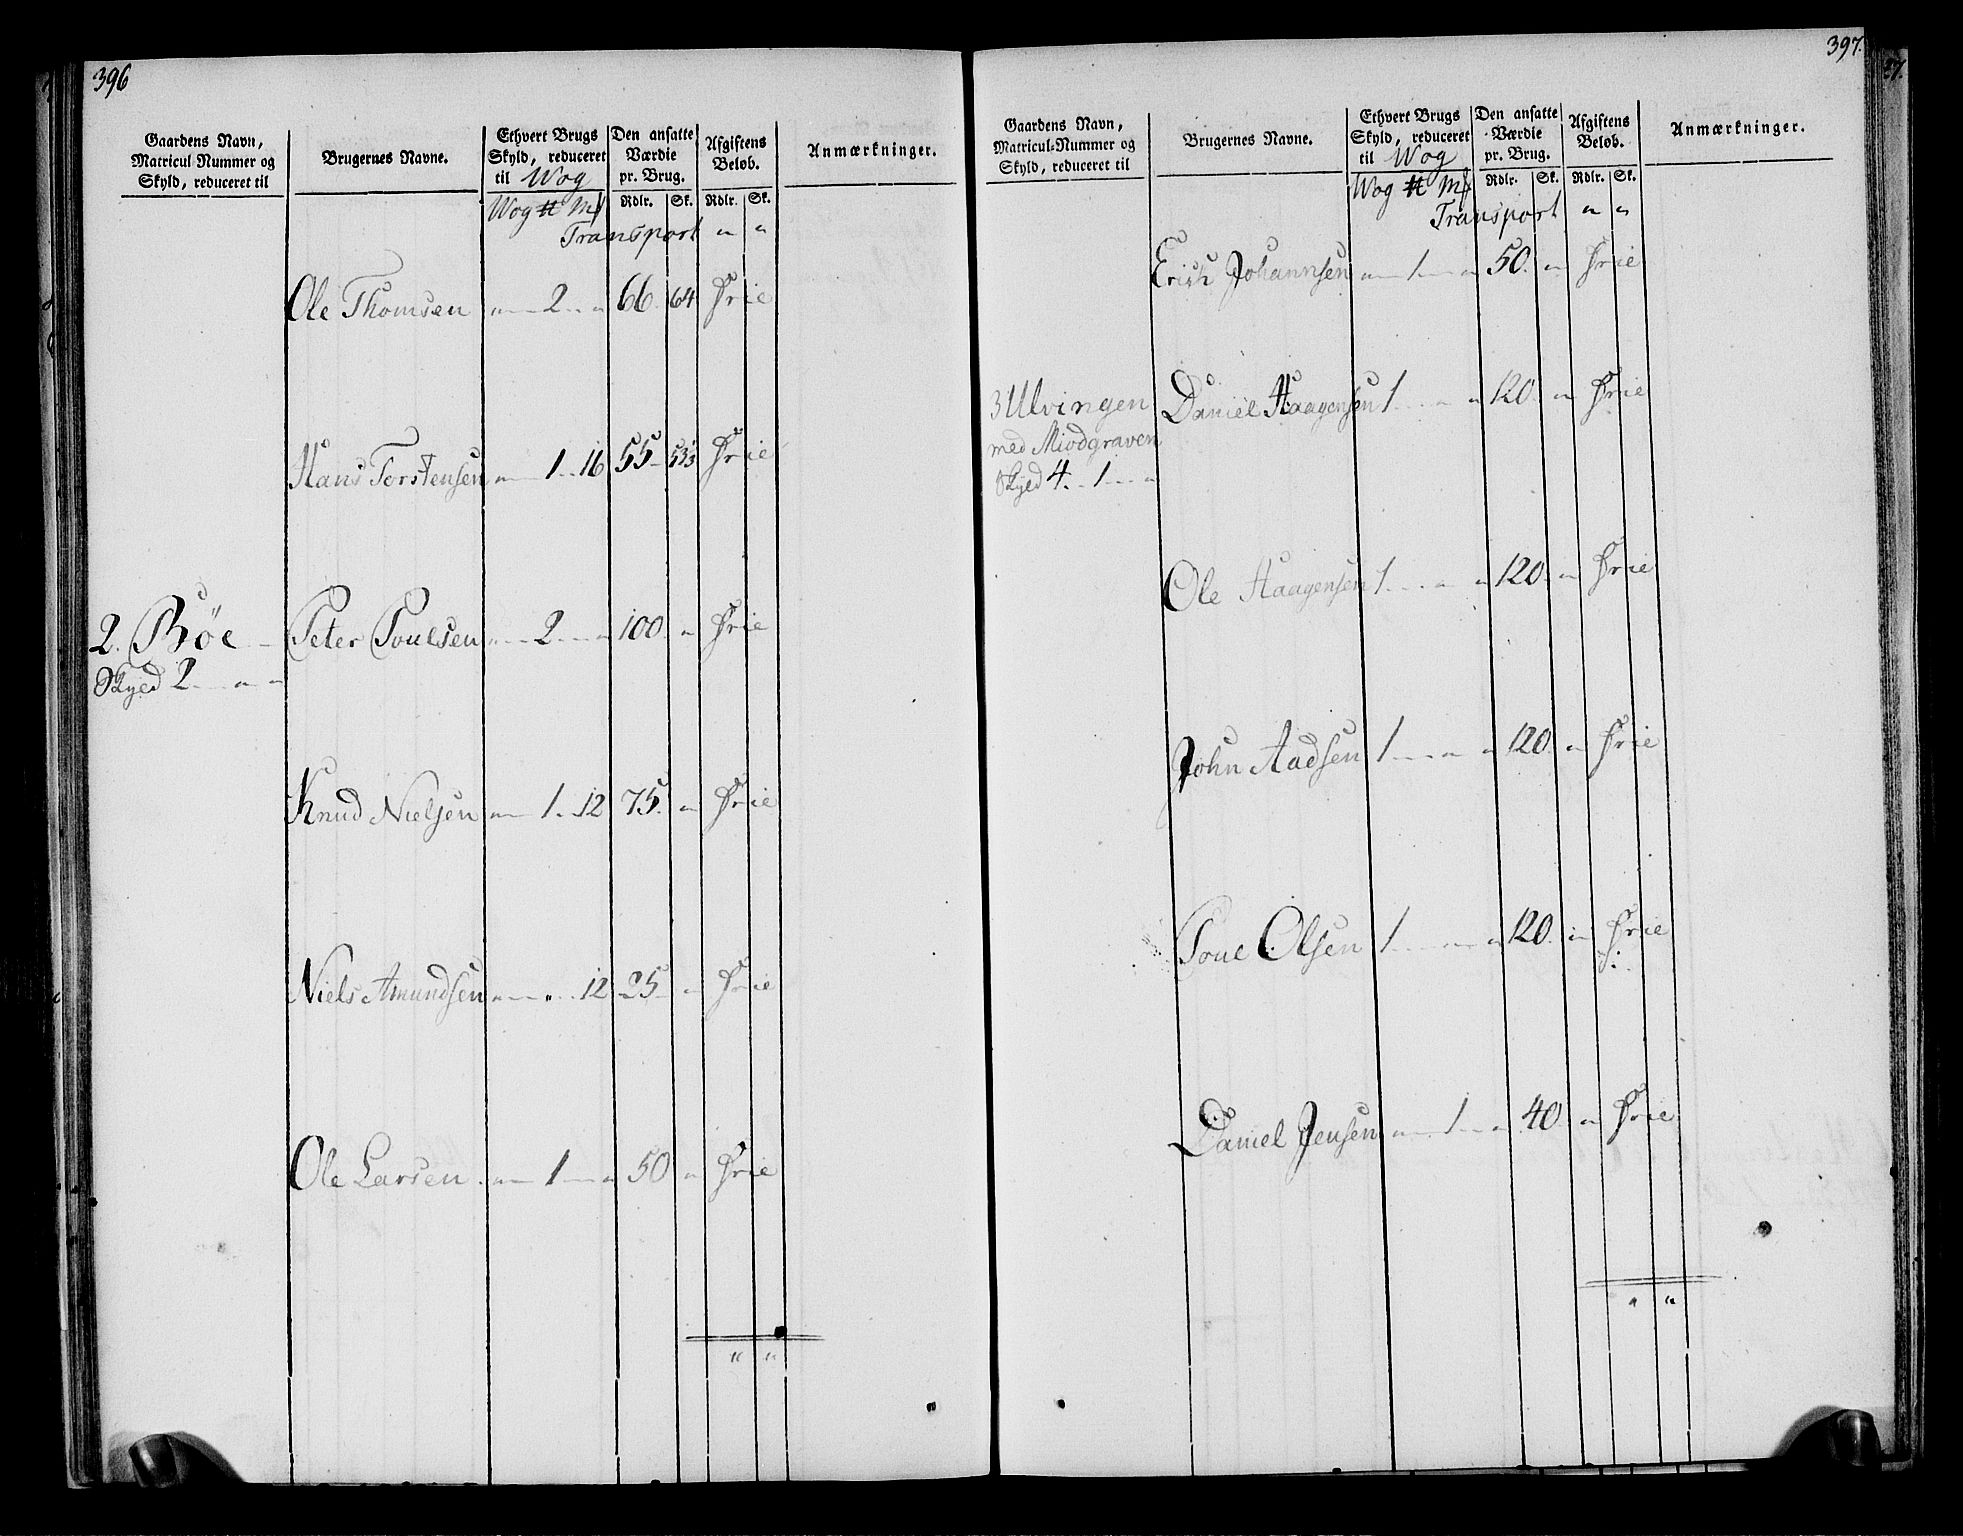 396
Gaardens Navn,
Matricul-Nummer og
Skyld, reduceret til
Brugernes Navne.
Ethvert Brugs
Skyld, reduceret
til Wog
Wog ℔ Mk
Den ansatte
Værdie
pr. Brug.
Rdlr. Sk.
Afgiftens
Beløb.
Rdlr. Sk.
Anmærkninger.
Transport " "
Ole Thomsen " 2 " 66. 64 Frie
Hans Torstensen " 1 16 55 53⅓ Frie
2. Bøe Peter Poulsen " 2 " 100 " Frie
Skyld 2 " "
Knud Nielsen " 1 12 75. " Frie
Niels Amundsen " " 12 25 " Frie
Ole Larsen " 1 " 50 " Frie
" "
397.
Gaardens Navn,
Matricul-Nummer og
Skyld, reduceret til
Brugernes Navne.
Ethvert Brugs
Skyld, reduceret
til Wog
Wog ℔ Mk
Den ansatte
Værdie
pr. Brug.
Rdlr. Sk.
Afgiftens
Beløb.
Rdlr. Sk.
Anmærkninger.
Transport " "
Erich Johannsen " 1 " 50. " Frie
3 Ulvingen Daniel Haagensen 1 " " 120. " Frie
med Miodgraven
Skyld 4 1 "
Ole Haagensen 1 " " 120. " Frie
John Aadsen 1 " " 120. " Frie
Poul Olsen 1 " " 120. " Frie
Daniel Jensen " 1 " 40. " Frie
" "